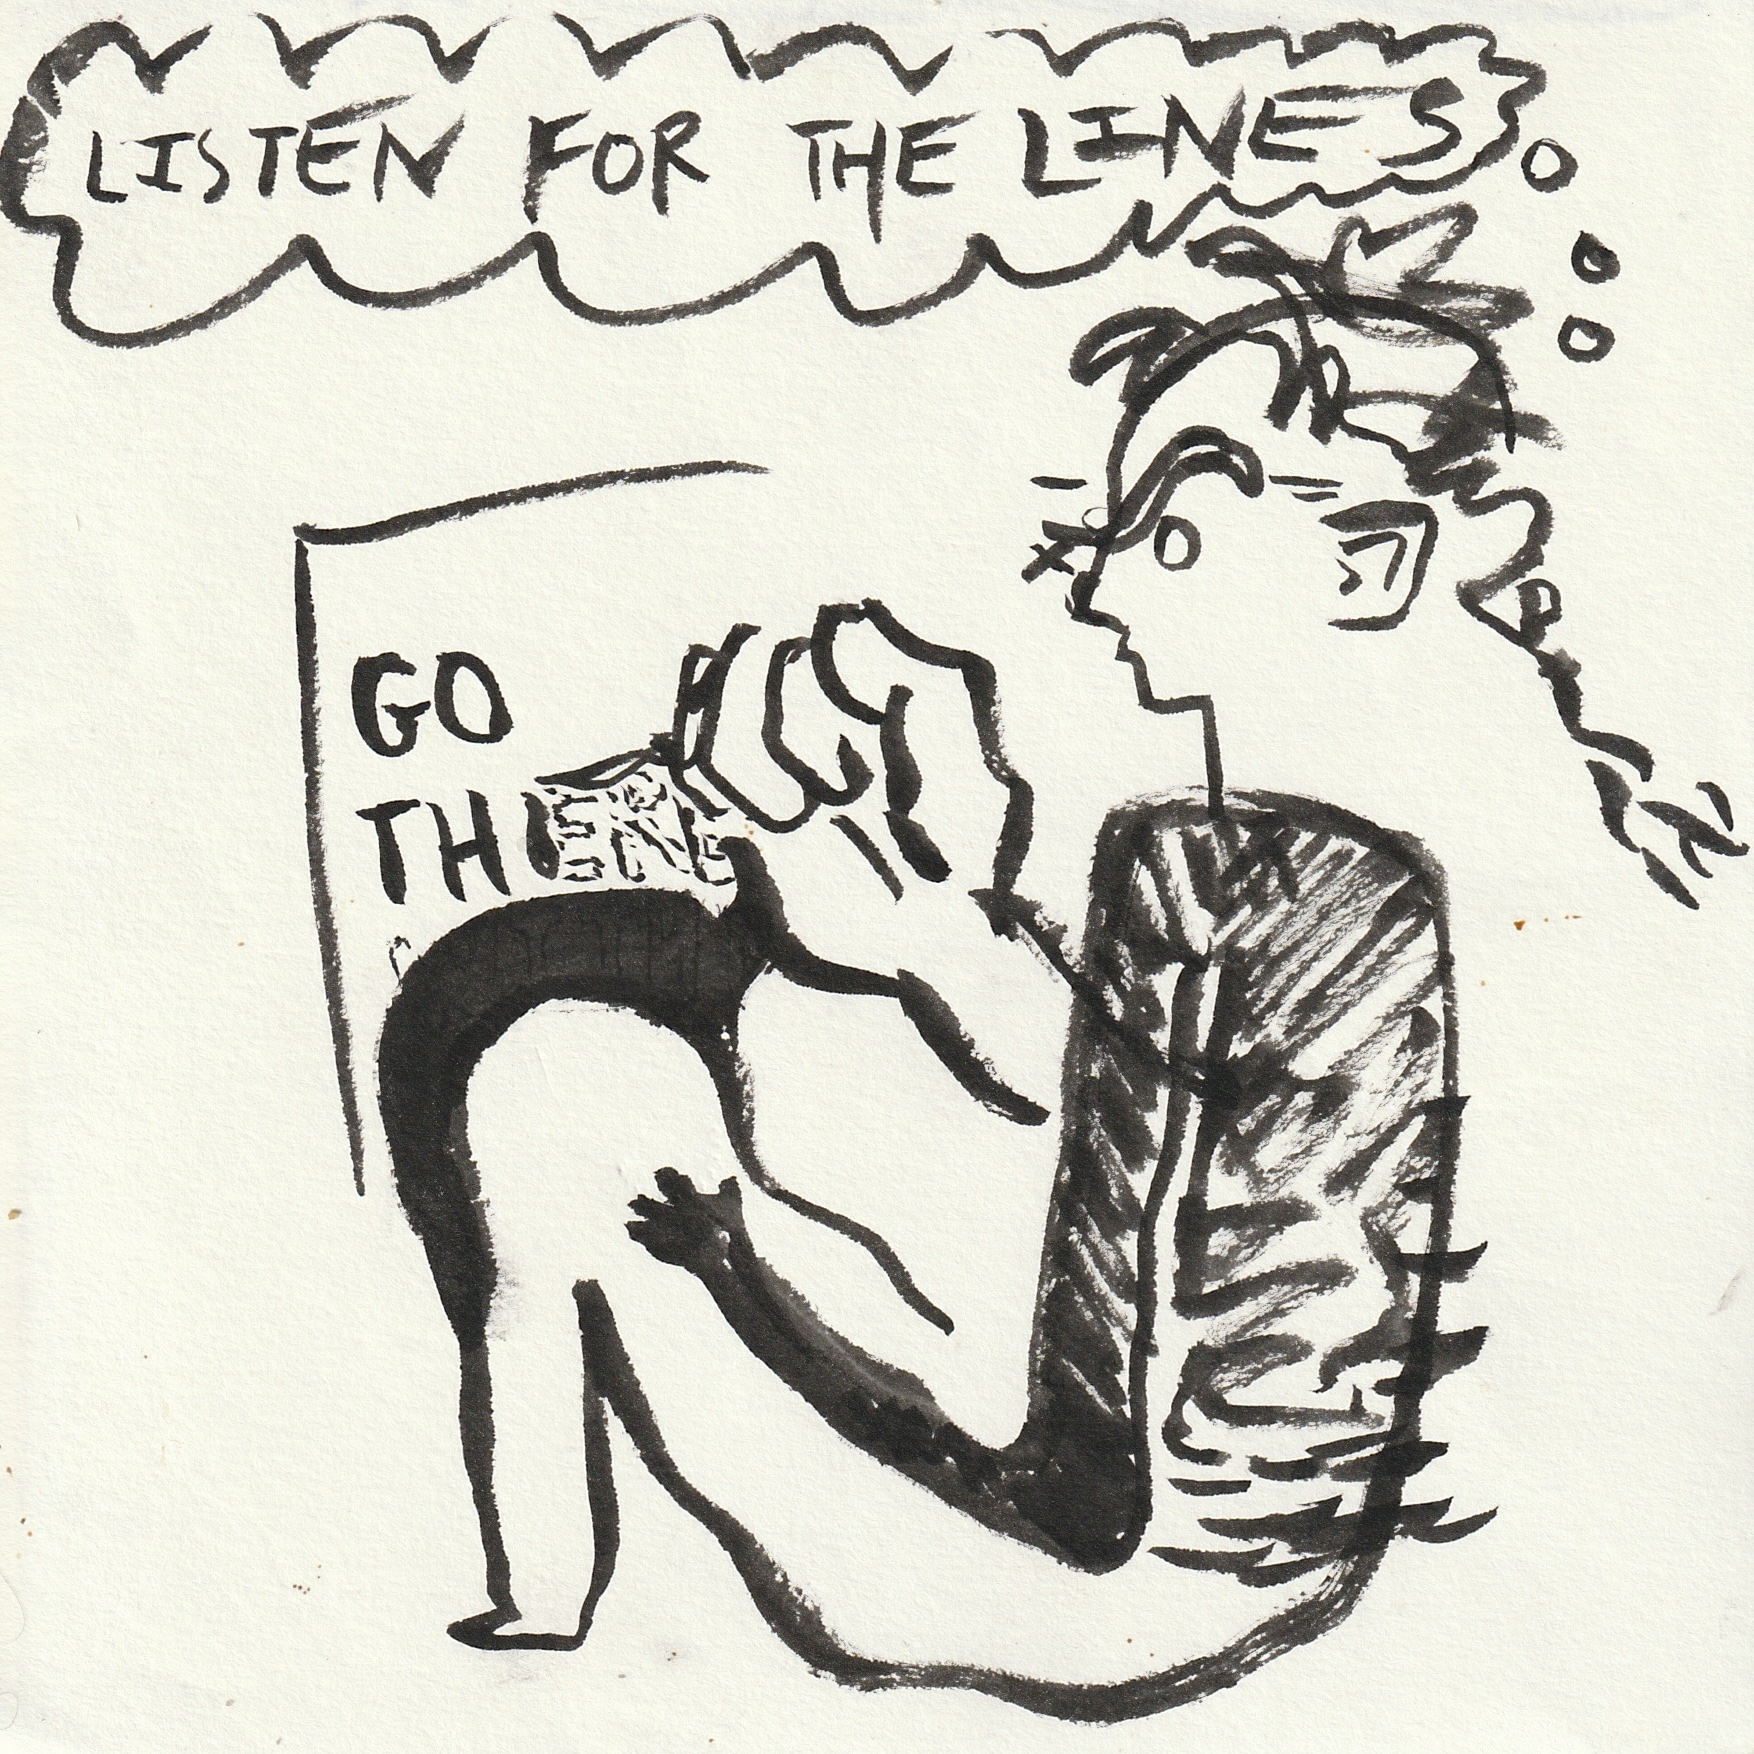 LISTEN FOR THE LINES
GO
THERE